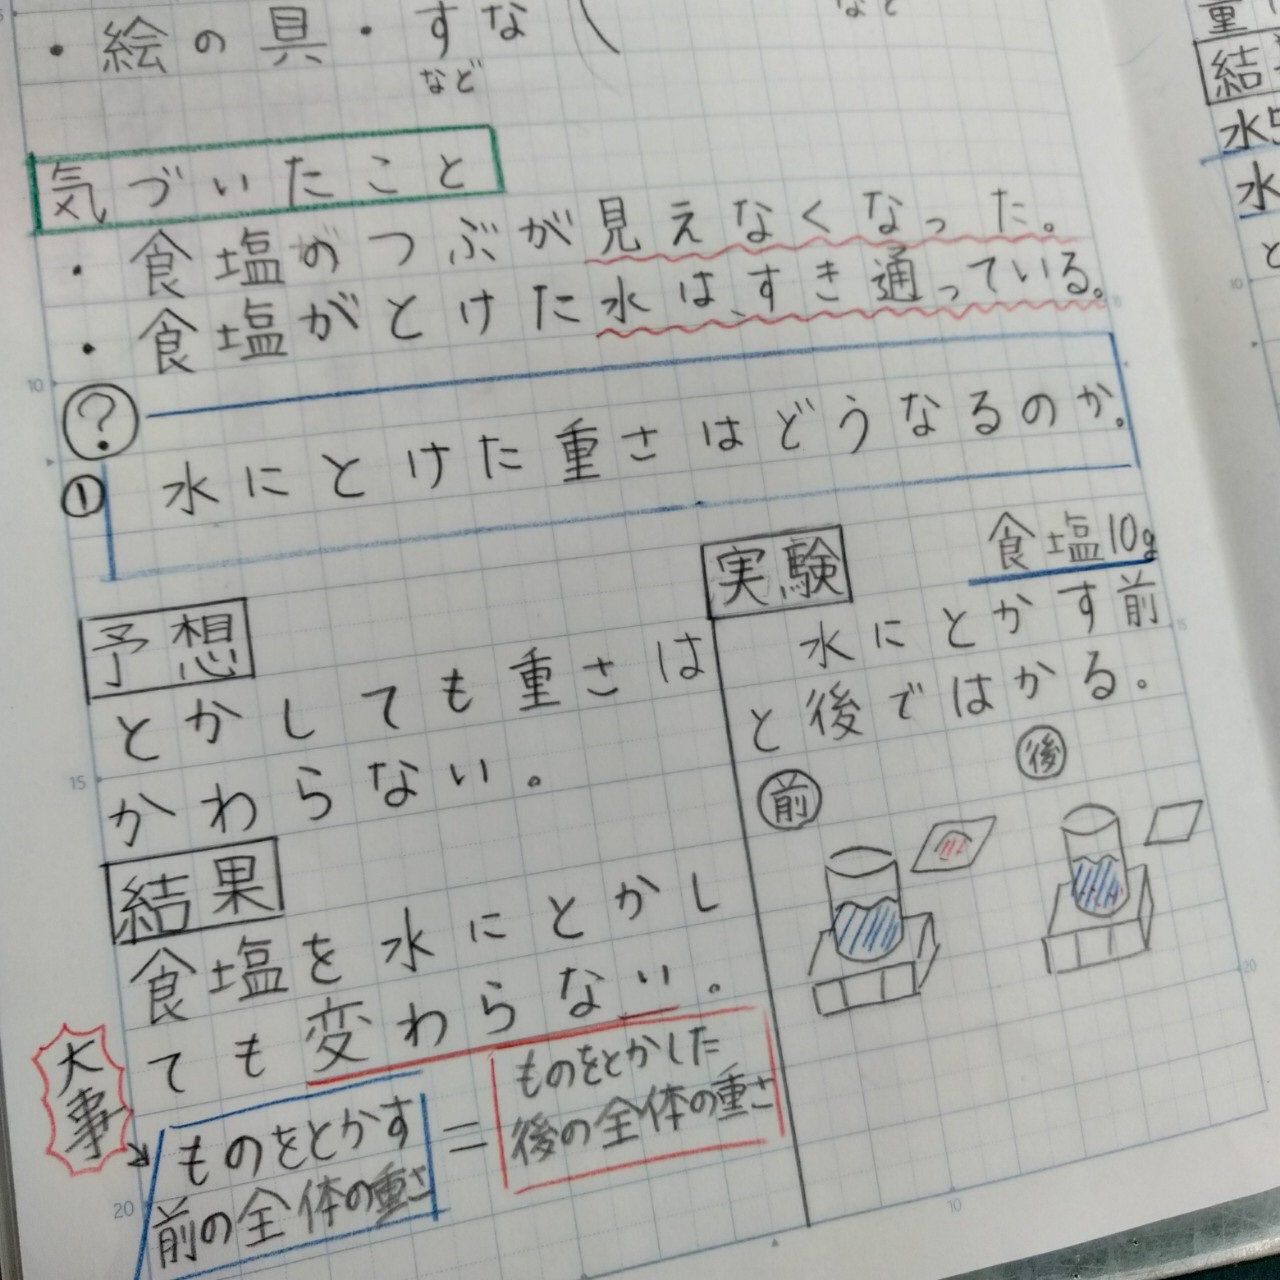 ・絵の具・すな
など
など
気づいたこと
・食塩のつぶが見えなくなった。
・食塩がとけた水は、すき通っている。
?
① 水にとけた重さはどうなるのか。
予想
とかしても重さは
かわらない。
結果
食塩を水にとかし
ても変わらない。
大事
ものをとかす
前の全体の重さ
=
ものをとかした
後の全体の重さ
実験
食塩10g
水にとかす前
と後ではかる。
前
後
重
結
水
水
と
10
15
20
15
20
10
10